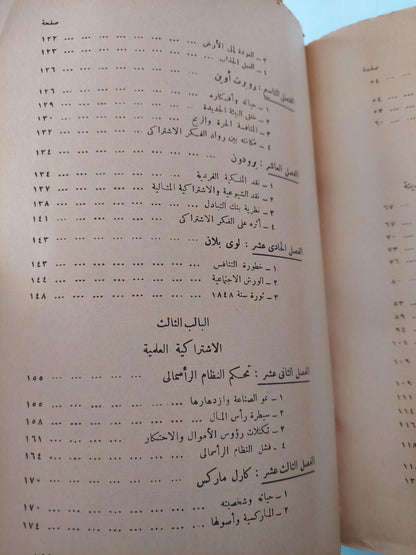 صفحة
٣ ــ العودة إلى الأرض ... ... ... ١٢٣
٤ ــ العمل الجذاب ... ... ... ١٢٣
الفصل التاسع : روبرت أوين ... ... ... ١٢٦
١ ــ حياته وأفكاره ... ... ... ١٢٦
٢ ــ خلق البيئة الجديدة ... ... ... ١٢٩
٣ ــ المنافسة الحرة والربح ... ... ... ١٣٠
٤ ــ مكانته بين رواد الفكر الاشتراكى ... ١٣٢
الفصل العاشر : برودون ... ... ... ١٣٤
١ ــ نقد الملكية الفردية ... ... ... ١٣٤
٢ ــ نقد الشيوعية والاشتراكية المثالية ... ١٣٧
٣ ــ نظرية بنك التبادل ... ... ... ١٣٨
٤ ــ أثره على الفكر الاشتراكى ... ... ١٤١
الفصل الحادى عشر : لوى بلان ... ... ١٤٣
١ ــ خطورة التنافس ... ... ... ١٤٣
٢ ــ الورش الاجتماعية ... ... ... ١٤٤
٣ ــ ثورة سنة ١٨٤٨ ... ... ... ١٤٨
الباب الثالث
الاشتراكية العلمية
الفصل الثانى عشر : تحكم النظام الرأسمالى ... ١٥٥
١ ــ نمو الصناعة وازدهارها ... ... ١٥٥
٢ ــ سيطرة رأس المال ... ... ... ١٥٨
٣ ــ تكتلات رؤوس الأموال والاحتكار ... ١٦١
٤ ــ فشل النظام الرأسمالى ... ... ١٦٤
الفصل الثالث عشر : كارل ماركس ... ... ١٧٠
١ ــ حياته وشخصيته ... ... ... ١٧٠
٢ ــ الماركسية وأصولها ... ... ... ١٧٤
صفحة
٥٤
٦٠
٦٧
٨٠
٨٣
٩٠